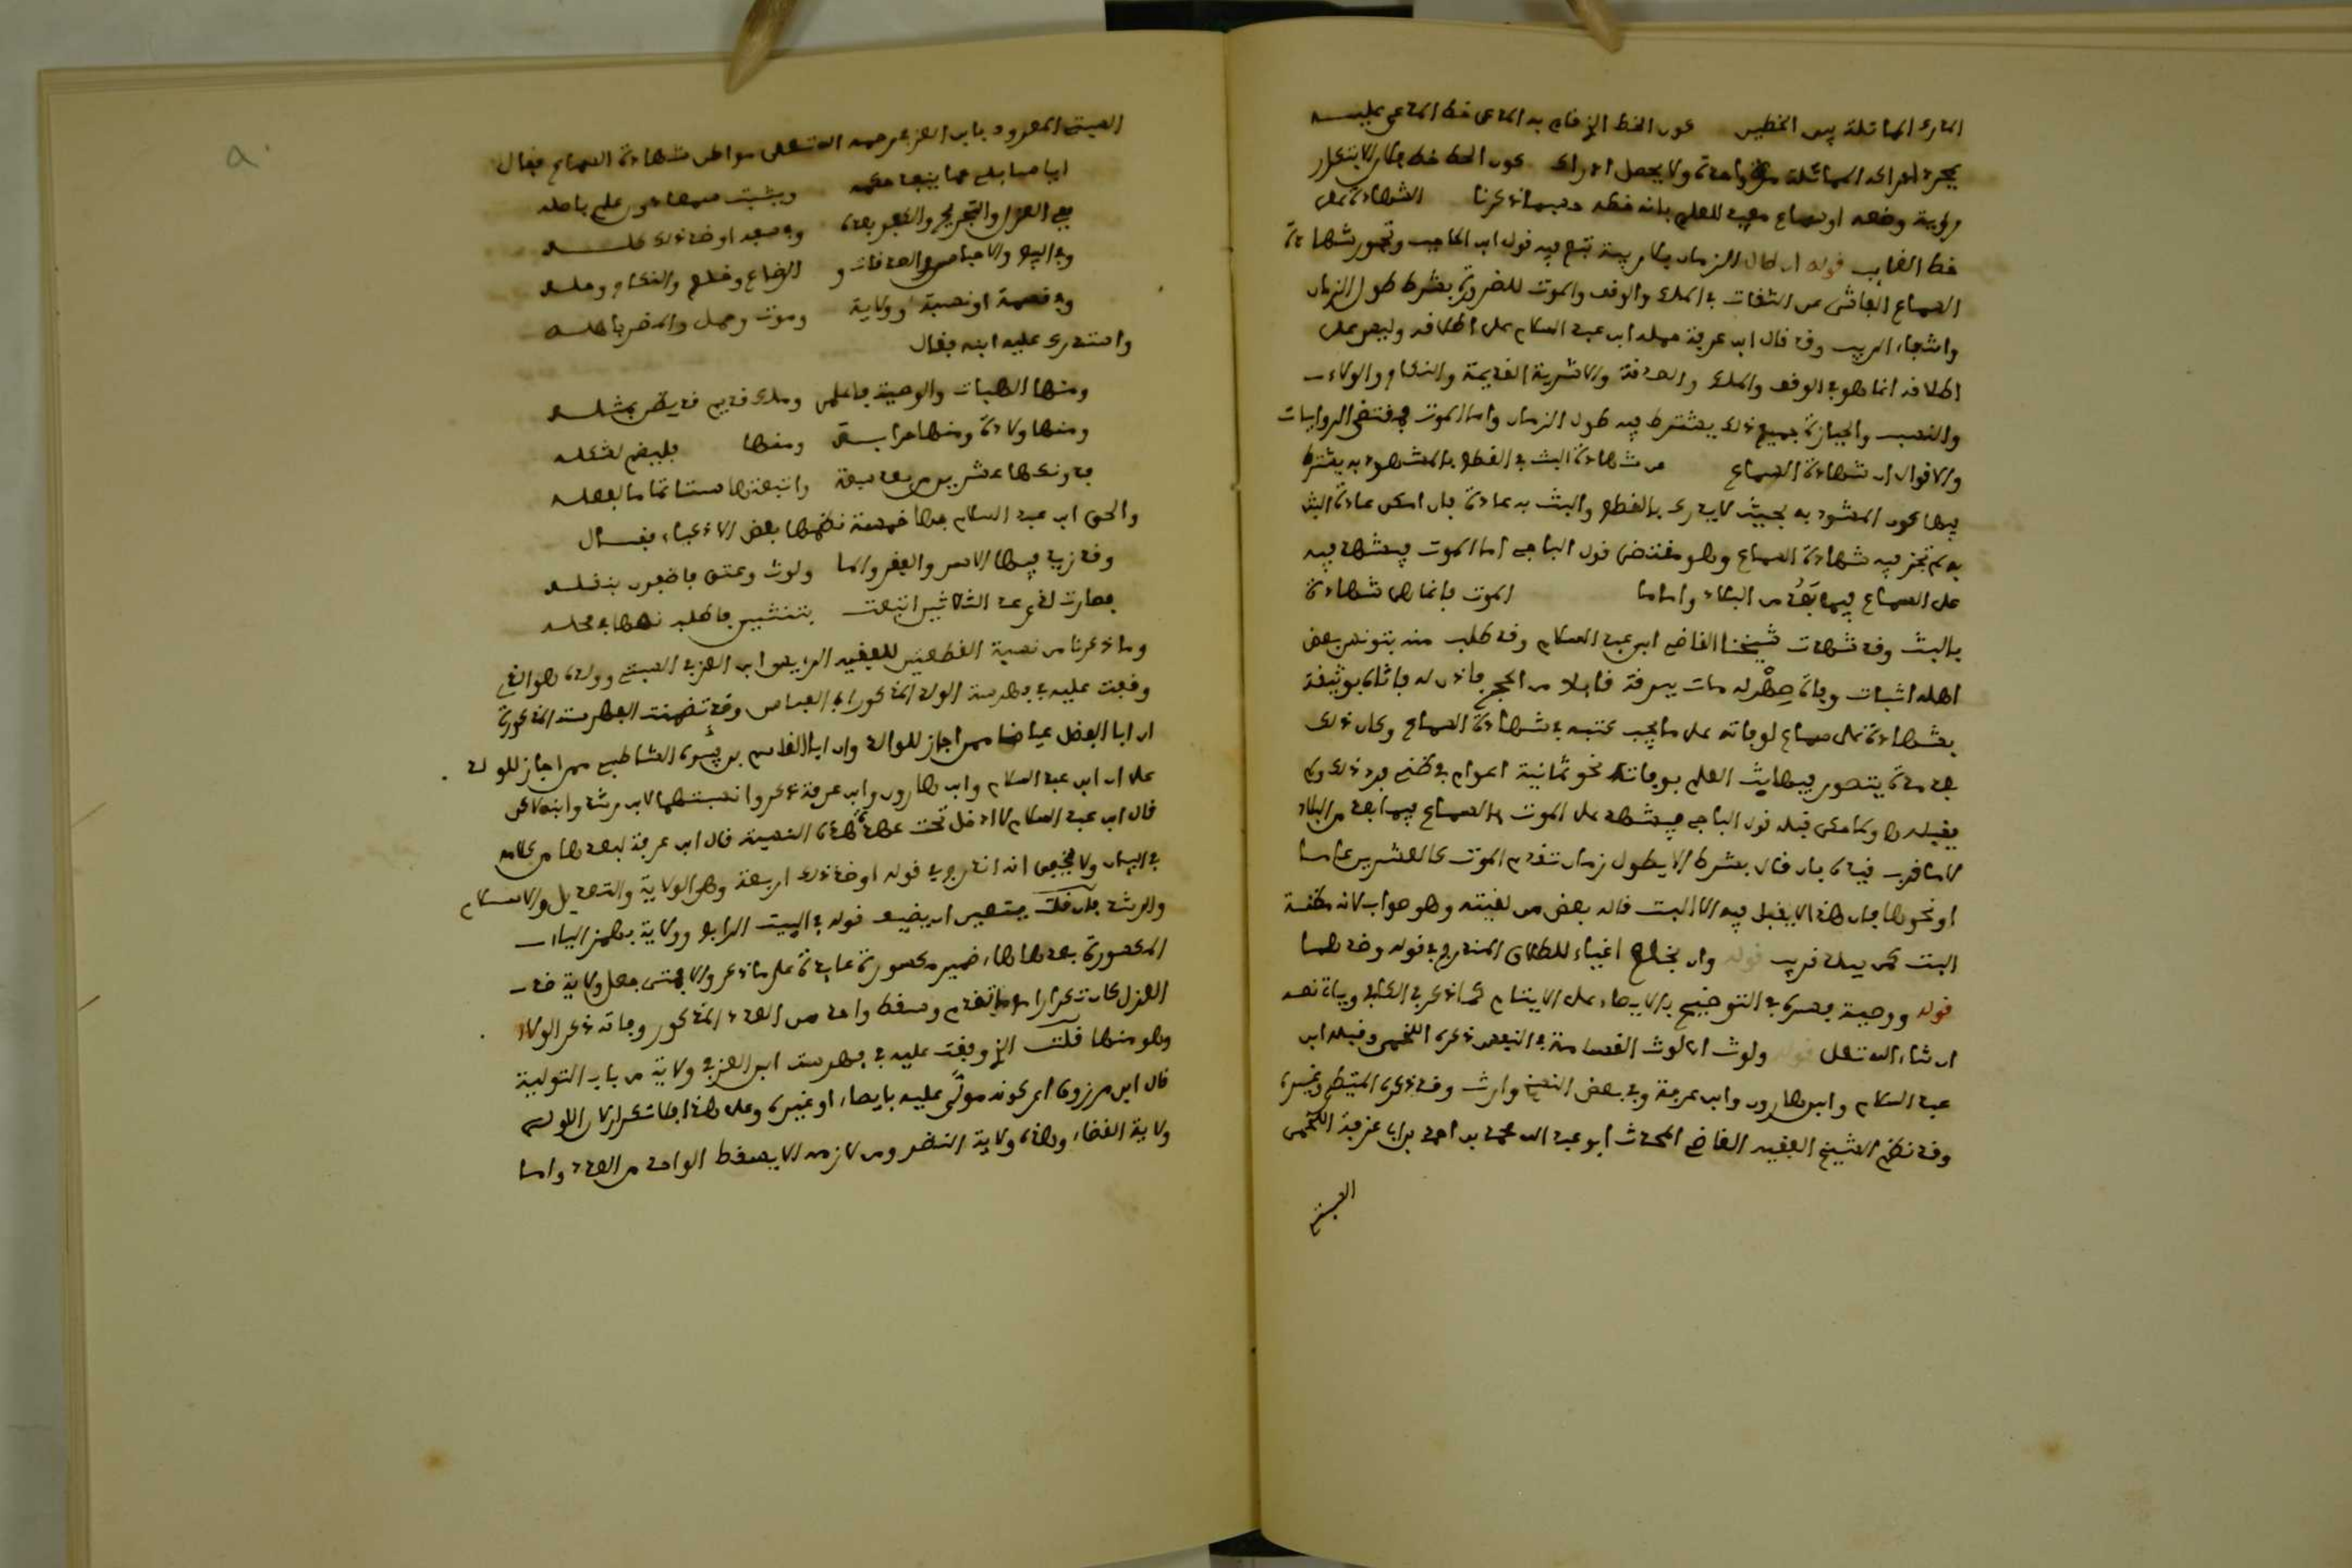 المدرك المماثلة بين الخطين كون الخط الذي قام به المدعي خط المدعى عليه
بمجرد ادراك المماثلة مرة واحدة ولا يحصل ادراك كون الخط خط فلان الا بتكرار
رؤية وضعه او سماع مفيد للعلم بانه خطه حسبما ذكرنا الشهادة على
خط الغايب قوله ان طال الزمان بلا ريبة تبع فيه قول ابن الحاجب وتجوز شهادة
السماع الفاشي عن الثقات في الملك والوقف والموت للضرورة بشرط طول الزمان
وانتفاء الريب وقد قال ابن عرفة حمله ابن عبد السلام على اطلاقه وليس على
اطلاقه انما هو في الوقف والملك والصدقة والاشرية القديمة والنكاح والولاء
والنسب والحيازة جميع ذلك يشترط فيه طول الزمان واما الموت فمقتضى الروايات
والاقوال ان شهادة السماع من شهادة البت في القطع بالمشهود به يشترط
فيها كون المشهود به بحيث لا يدرك بالقطع والبت به عادة فان امكن عادة البت
به لم تجز فيه شهادة السماع وهو مقتضى قول الباجي اما الموت فيشهد فيه
على السماع فيما بَعُد من البلاد واما ما الموت فانما هي شهادة
بالبت وقد شهدت شيخنا القاضي ابن عبد السلام وقد طلب منه بتونس بعض
اهله اثبات وفاة صِهْر له مات ببرقة قافلا من الحج فاذن له فاتاه بوثيقة
بشهادة على سماع لوفاته على ما يجب كتبه في شهادة السماع وكان ذلك
بعد مدة يتصور فيها بث العلم بوفاته نحو ثمانية اعوام في ظني فرد ذلك ولم
يقبله وكما مضى قبله قول الباجي فيشهد على الموت بالسماع فيما بعد من البلاد
لا ما قرب قيده بان قال بشرط الا يطول زمان تقدم الموت كالعشرين عاما
او نحوها فان هذا لا يقبل فيه الا البت قاله بعض من لقيته وهو صواب لانه مظنة
البت كمن ببلد قريب قوله وان بخلع اغياء للطلاق المندرج في قوله وضدهما
قوله ووصية فسره في التوضيح بالايصاء على الايتام كما ذكر في الكافي وياتي نصه
ان شاء الله تعلى قوله ولوث اي لوث القسامة في النفس ذكره اللخمي وقبله ابن
عبد السلام وابن هارون وابن عرفة وفي بعض النسخ وارث وقد ذكره المتيطي وغيره
وقد نظم الشيخ الفقيه القاضي المحدث ابو عبد الله محمد بن احمد بن ابي عزفة اللخمي
السبتي
السبتي المعروف بابن العزفي رحمه الله تعلى مواطن شهادة السماع فقال
ايا سايلي عما ينفذ حكمه ويثبت سمعا دون علم باصله
ففي العزل والتجريح والكفر بعده وفي سفه او ضد ذلك كله
وفي البيع والاحباس والصدقات و الرضاع وخلع والنكاح وحله
وفي قسمة او نسبة وولاية وموت وحمل والمضر باهله
واستدرك عليه ابنه فقال
ومنها الهبات والوصية فاعلمن وملك قديم قد يظن بمثله
ومنها ولادة ومنها حرابة ومنها فليضم لشكله
فدونكها عشرين من بعد سبعة واتبعتها ستا تماما لفعله
والحق ابن عبد السلام بها خمسة نظمها بعض الاذكياء فقال
وقد زيد فيها الاسر والفقر والملا ولوث وعتق فاظفرن بنقله
فصارت لدى عد الثلاثين اتبعت بثنتين فاطلب نصها في محله
وما ذكرنا من نسبة القطعتين للفقيه الرييس ابن العزفي السبتي وولده هو الذي
وقفت عليه في فهرسة الولد المذكور ابي العباس وقد تضمنت الفهرسة المذكورة
ان ابا الفضل عياضا ممن اجاز للوالد وان ابا القاسم بن فِيُّره الشاطبي ممن اجاز للولد
على ان ابن عبد السلام وابن هارون وابن عرفة ذكروا نسبتهما لابن رشد وابنه لكن
قال ابن عبد السلام لا ادخل تحت عهدة هذه النسبة قال ابن عرفة لبعدها من كلامه
في البيان ولا يخفى انه اندرج في قوله او ضد ذلك اربعة وهي الولاية والتعديل والاسلام
والرشد فان قلت يتعين ان يضبط قوله في البيت الرابع وولاية بهمز الياء
المكسورة بعدها هاء ضمير مكسورة عايدة على ما ذكر والا فمتى جعل ولاية ضد
العزل كانت تكرارا مع ما تقدم وسقط واحد من العدد المذكور وفاته ذكر الولاء
وهو منها قلت الذي وقفت عليه في فهرست ابن العزفي ولاية من باب التولية
قال ابن مرزوق اي كونه مولًّى عليه بايصاء او غيره وعلى هذا فلا تكرار لان الاولى
ولاية القضاء وهذه ولاية النظر ومن لازمه الا يسقط الواحد من العدد واما